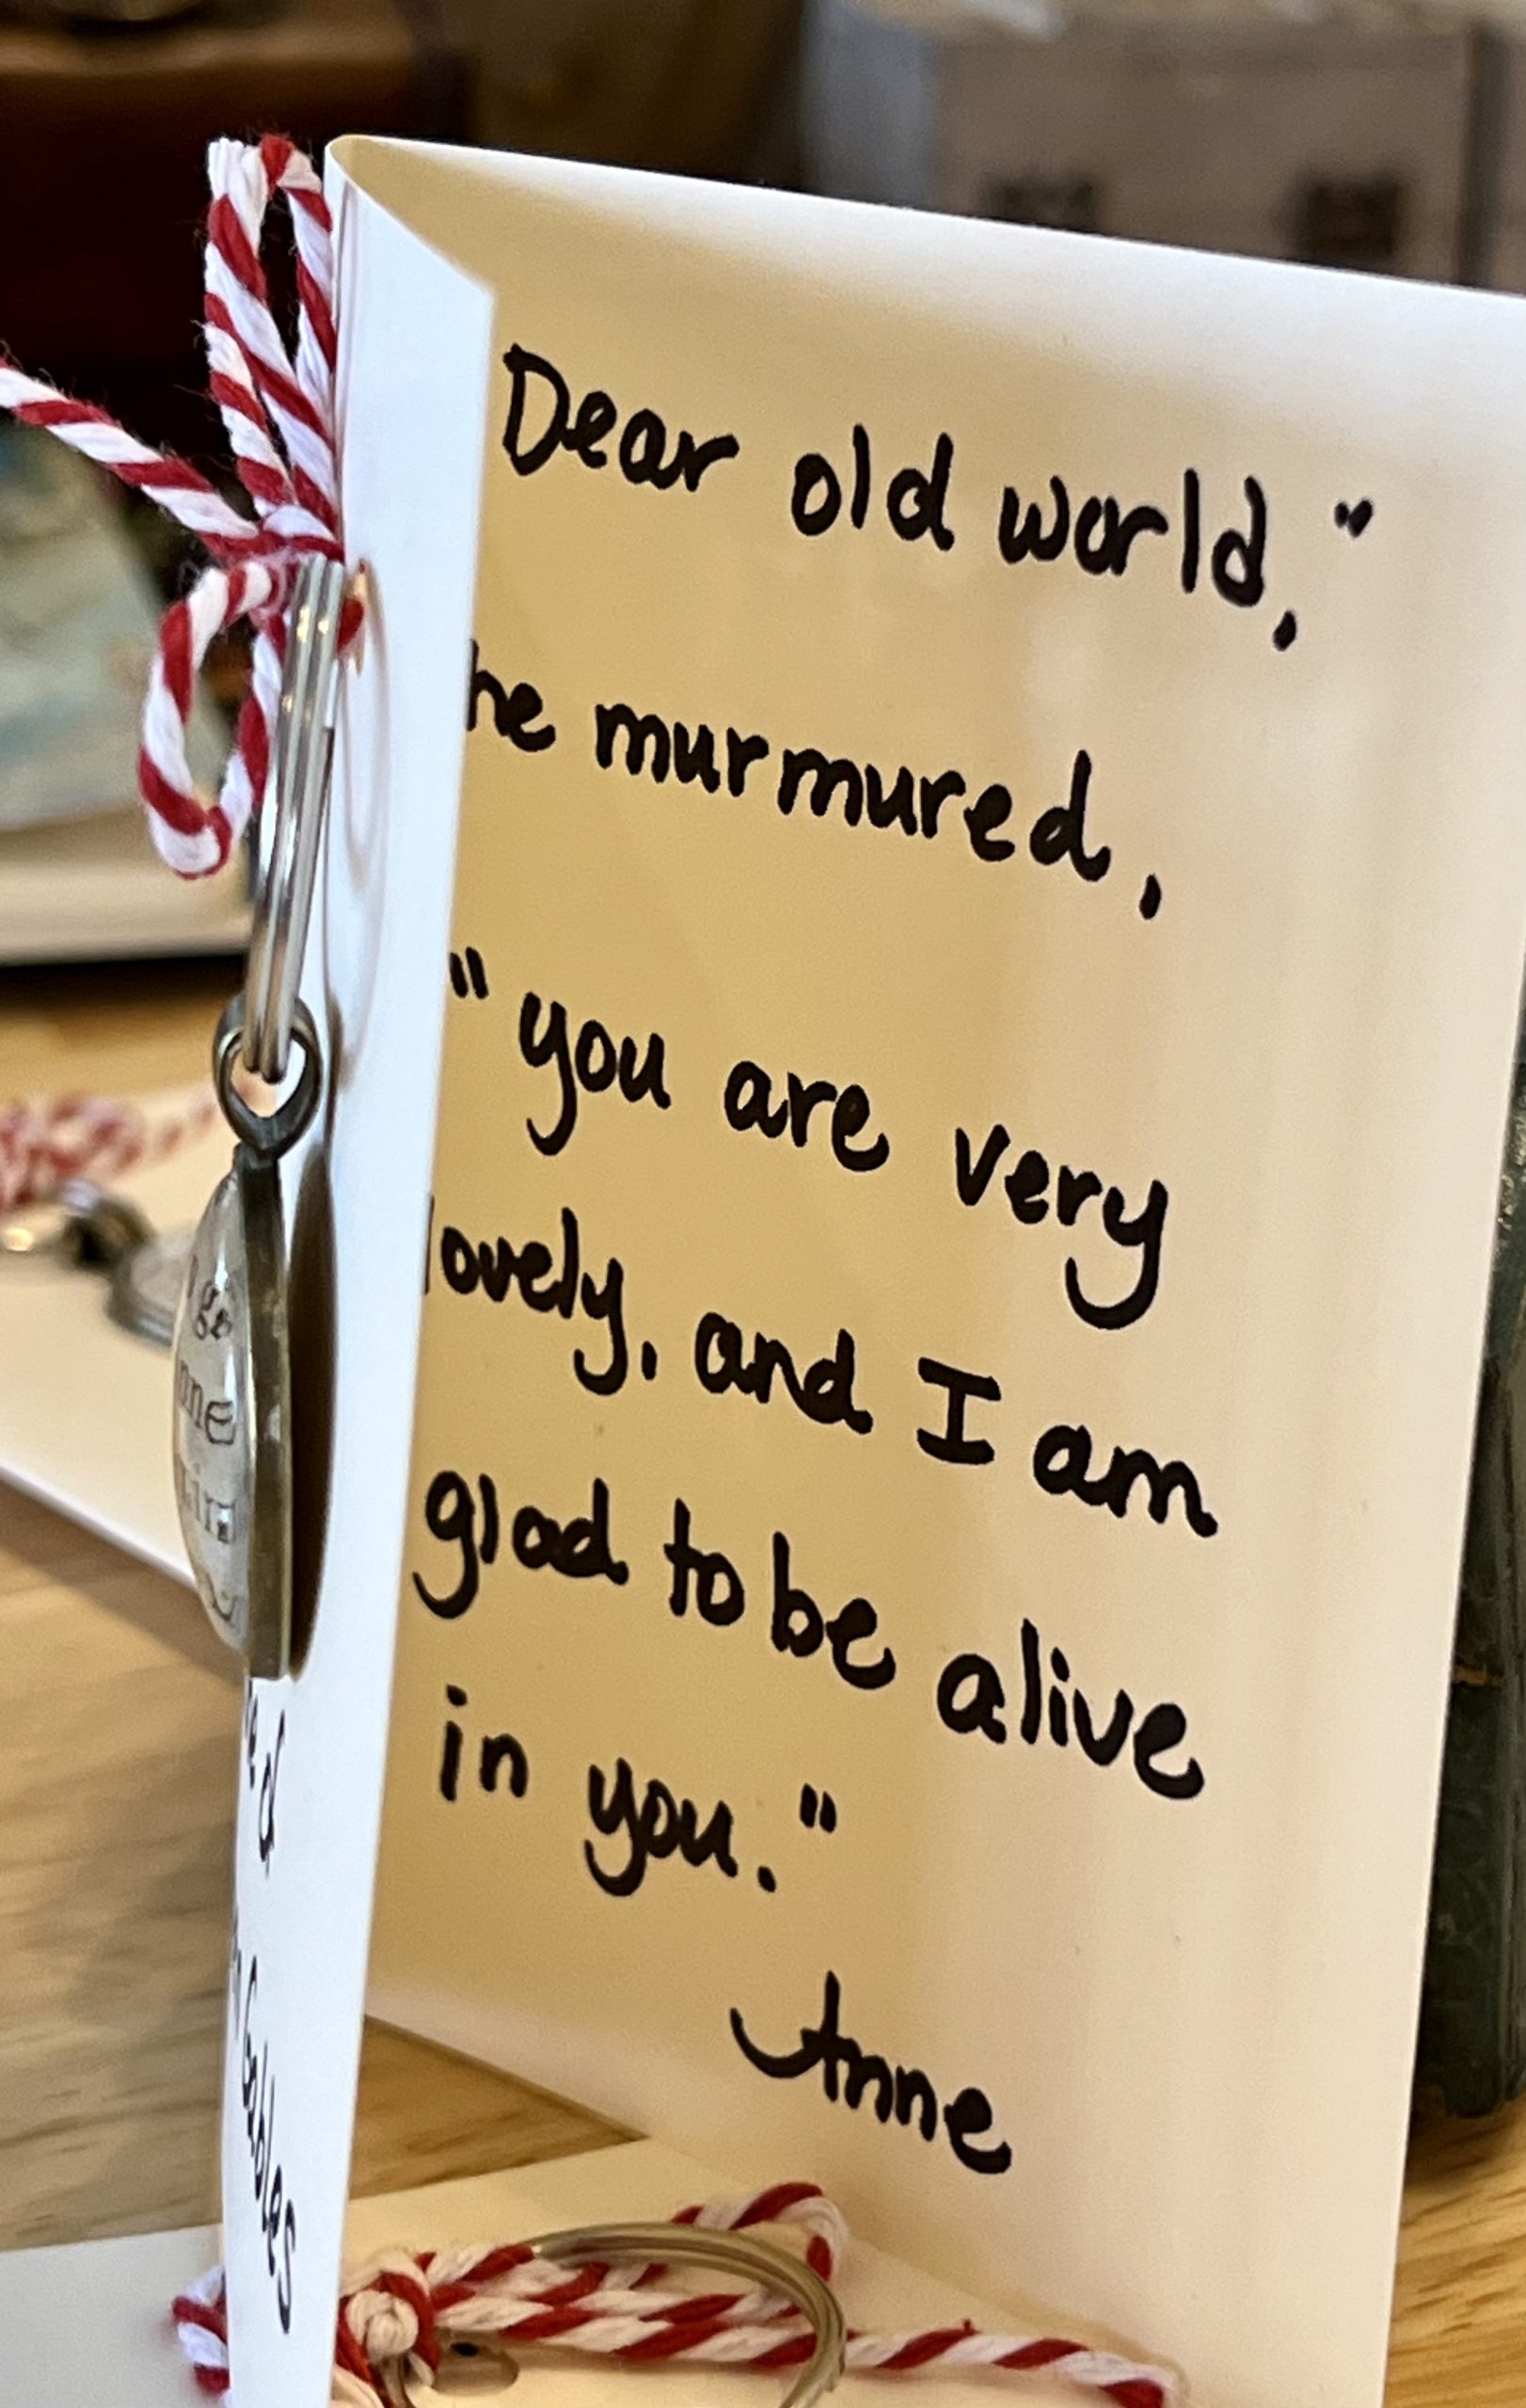 Dear old world,"
he murmured,
"you are very
lovely, and I am
glad to be alive
in you."
Anne
Gables